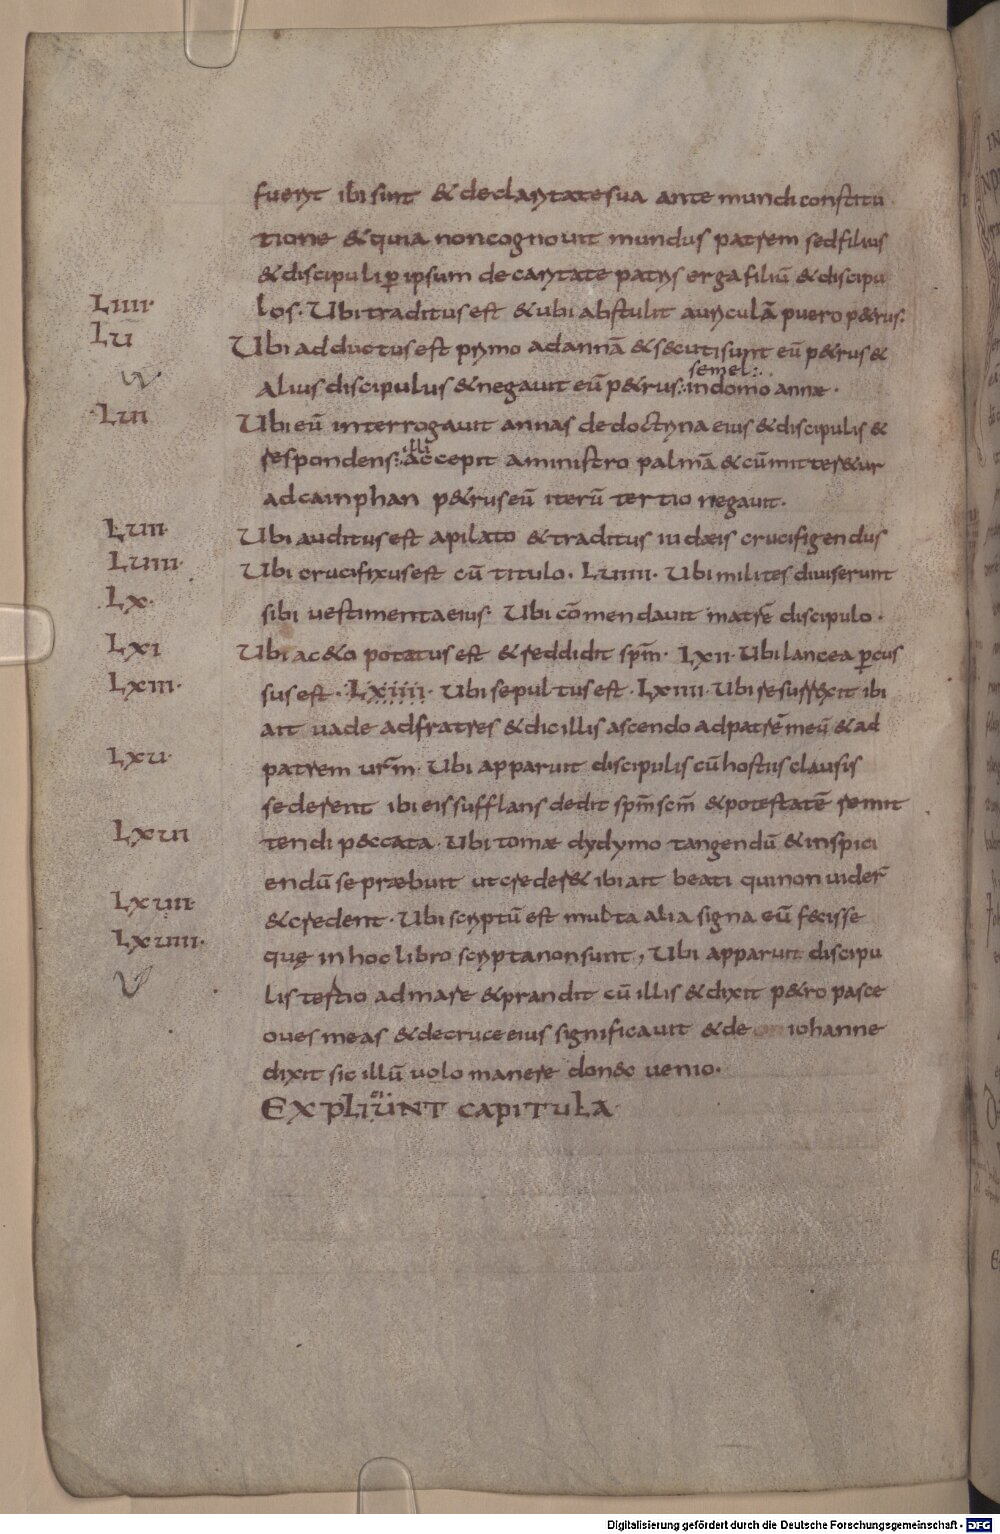 fuerit ibi sint & de claritate sua ante mundi constitu
tione & quia non cognouit mundus patrem sed filius
& discipuli ꝑ ipsum de caritate patris erga filiū & discipu
Liiii· los· Ubi traditus est & ubi abstulit auriculā puero p&rus:
Lu Ubi adductus est primo ad annā & secuti sunt eū p&rus &
semel:·
alius discipulus & negauit eū p&rus:· in domo annæ·
·Lui Ubi eū interrogauit annas de doctrina eius & discipulis &
illi
respondens:· accepit a ministro palmā & cū mitter&ur
ad cainphan p&rus eū iterū tertio negauit·
Luii· Ubi auditus est a pilato & traditus iudæis crucifigendus
Luiiii· Ubi crucifixus est cū titulo· Luiiii· Ubi milites diuiserunt
Lx· sibi uestimenta eius· Ubi cōmendauit matrē discipulo·
Lxi Ubi ac&o potatus est & reddidit spm̄· Lxii· Ubi lancea ꝑcus
Lxiii· sus est· Lxiiii· Ubi sepultus est· Lxiiii· Ubi resurrexit ibi
ait uade ad fratres & dic illis ascendo ad patrē meū & ad
Lxu· patrem ur̄m· Ubi apparuit discipulis cū hostiis clausis
sederent ibi eis sufflans dedit spm̄ scm̄ & potestatē remit
Lxui tendi peccata· Ubi tomæ dydymo tangendū & inspici
endū se præbuit ut creder& ibi ait beati qui non uider̄
Lxuii· & credent· Ubi scriptū est multa alia signa eū fecisse
Lxuiii· quę in hoc libro scripta non sunt, Ubi apparuit discipu
lis tertio ad mare & prandit cū illis & dixit p&ro pasce
oues meas & de cruce eius significauit & de iohanne
dixit sic illū uolo manere donec uenio·
EXPLIUNT CAPITULA·
Digitalisierung gefördert durch die Deutsche Forschungsgemeinschaft - DFG